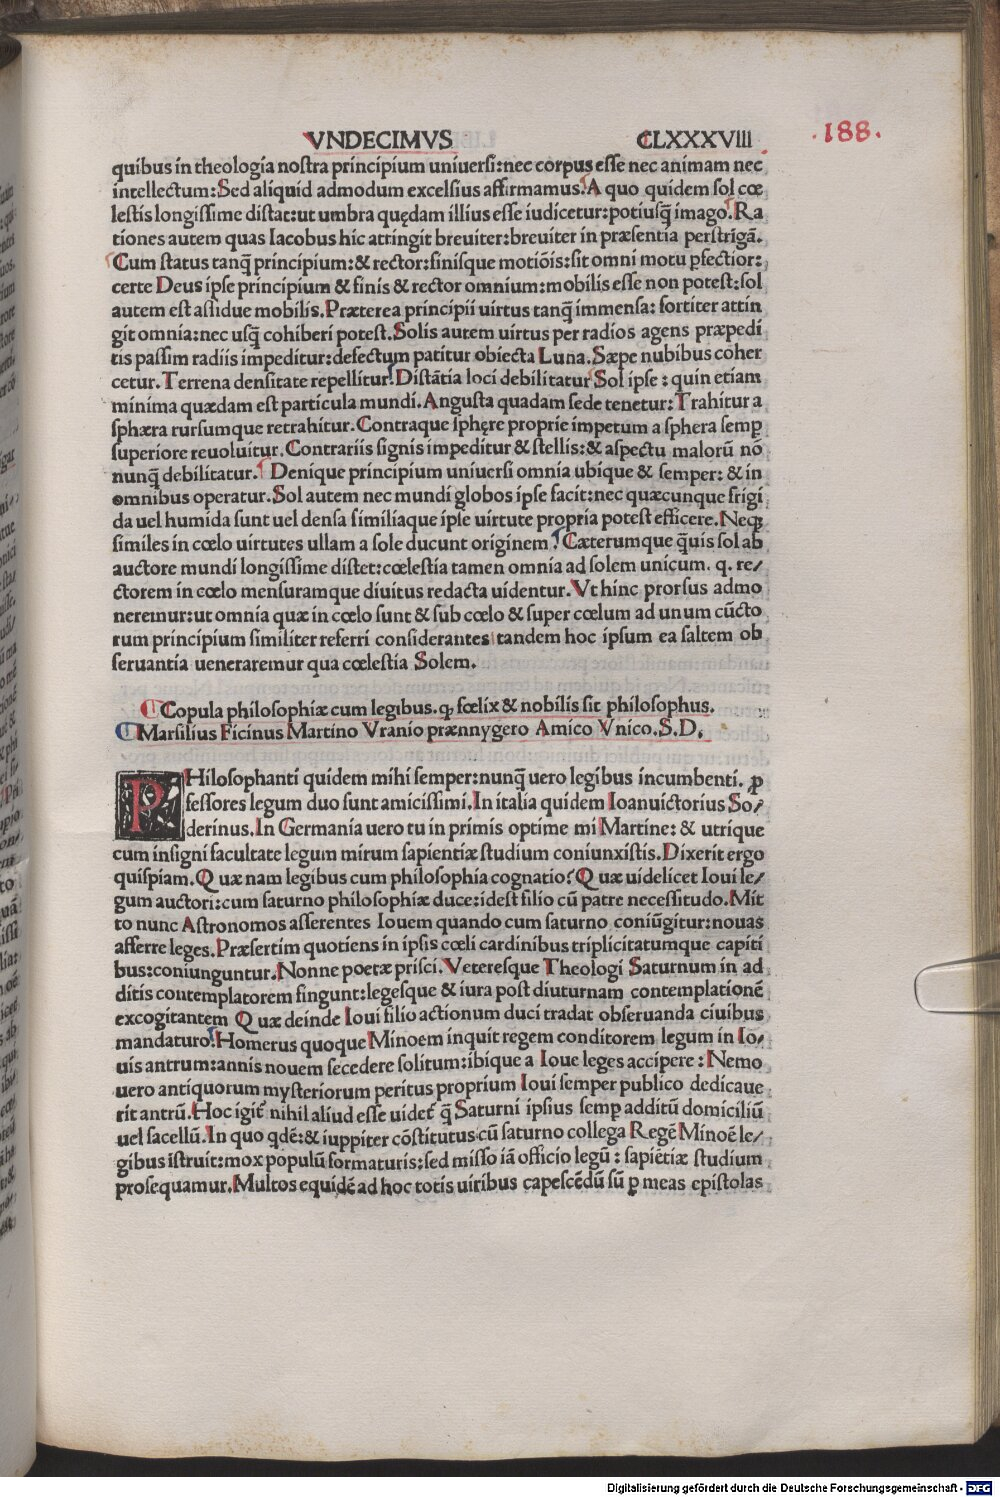 VNDECIMVS CLXXXVIII .188.
quibus in theologia nostra principium uniuersi:nec corpus esse nec animam nec
intellectum:Sed aliquid admodum excelsius affirmamus.A quo quidem sol cœ
lestis longissime distat:ut umbra quędam illius esse iudicetur:potiusq̃ imago.Ra
tiones autem quas Iacobus hic attingit breuiter:breuiter in præsentia perstrīgã.
Cum status tanq̃ principium:& rector:finisque motiõis:sit omni motu ꝑfectior:
certe Deus ipse principium & finis & rector omnium:mobilis esse non potest:sol
autem est assidue mobilis.Præterea principii uirtus tanq̃ immensa: fortiter attin
git omnia:nec usq̃ cohiberi potest.Solis autem uirtus per radios agens præpedi
tis passim radiis impeditur:defectum patitur obiecta Luna.Sæpe nubibus coher
cetur.Terrena densitate repellitur.Distãtia loci debilitatur Sol ipse : quin etiam
minima quædam est particula mundi.Angusta quadam sede tenetur:Trahitur a
sphæra rursumque retrahitur.Contraque sphęre proprie impetum a sphera semꝑ
superiore reuoluitur.Contrariis signis impeditur & stellis:& aspectu malorũ nõ
nunq̃ debilitatur. Denique principium uniuersi omnia ubique & semper: & in
omnibus operatur.Sol autem nec mundi globos ipse facit:nec quæcunque frigi
da uel humida sunt uel densa similiaque ipse uirtute propria potest efficere.Neqꝫ
similes in cœlo uirtutes ullam a sole ducunt originem.Cæterumque q̃uis sol ab
auctore mundi longissime distet:cœlestia tamen omnia ad solem unicum. q. re/
ctorem in cœlo mensuramque diuitus redacta uidentur.Vt hinc prorsus admo
neremur:ut omnia quæ in cœlo sunt & sub cœlo & super cœlum ad unum cũcto
rum principium similiter referri considerantes tandem hoc ipsum ea saltem ob
seruantia ueneraremur qua cœlestia Solem.
Copula philosophiæ cum legibus.qꝫ fœlix & nobilis sit philosophus.
Marsilius Ficinus Martino Vranio prænnygero Amico Vnico.S.D.
PHilosophanti quidem mihi semper:nunq̃ uero legibus incumbenti. ꝓ
fessores legum duo sunt amicissimi.In italia quidem Ioanuictorius So/
derinus.In Germania uero tu in primis optime mi Martine: & utrique
cum insigni facultate legum mirum sapientiæ studium coniunxistis.Dixerit ergo
quispiam.Quæ nam legibus cum philosophia cognatio?Quæ uidelicet Ioui le/
gum auctori:cum saturno philosophiæ duce:idest filio cũ patre necessitudo.Mit
to nunc Astronomos asserentes Iouem quando cum saturno coniũgitur:nouas
afferre leges.Præsertim quotiens in ipsis cœli cardinibus triplicitatumque capiti
bus:coniunguntur.Nonne poetæ prisci.Veteresque Theologi Saturnum in ad
ditis contemplatorem fingunt:legesque & iura post diuturnam contemplationẽ
excogitantem Quæ deinde Ioui filio actionum duci tradat obseruanda ciuibus
mandaturo.Homerus quoque Minoem inquit regem conditorem legum in Io/
uis antrum:annis nouem secedere solitum:ibique a Ioue leges accipere : Nemo
uero antiquorum mysteriorum peritus proprium Ioui semper publico dedicaue
rit antrũ.Hoc igit̃ nihil aliud esse uidet̃ q̃ Saturni ipsius semꝑ additũ domiciliũ
uel sacellũ.In quo qdẽ:& iuppiter cõstitutus cũ saturno collega Regẽ Minoẽ le/
gibus istruit:mox populũ formaturis:sed misso iã officio legũ : sapiẽtiæ studium
prosequamur.Multos equidẽ ad hoc totis uiribus capescẽdũ sũ ꝑ meas epistolas
Digitalisierung gefördert durch die Deutsche Forschungsgemeinschaft - DFG